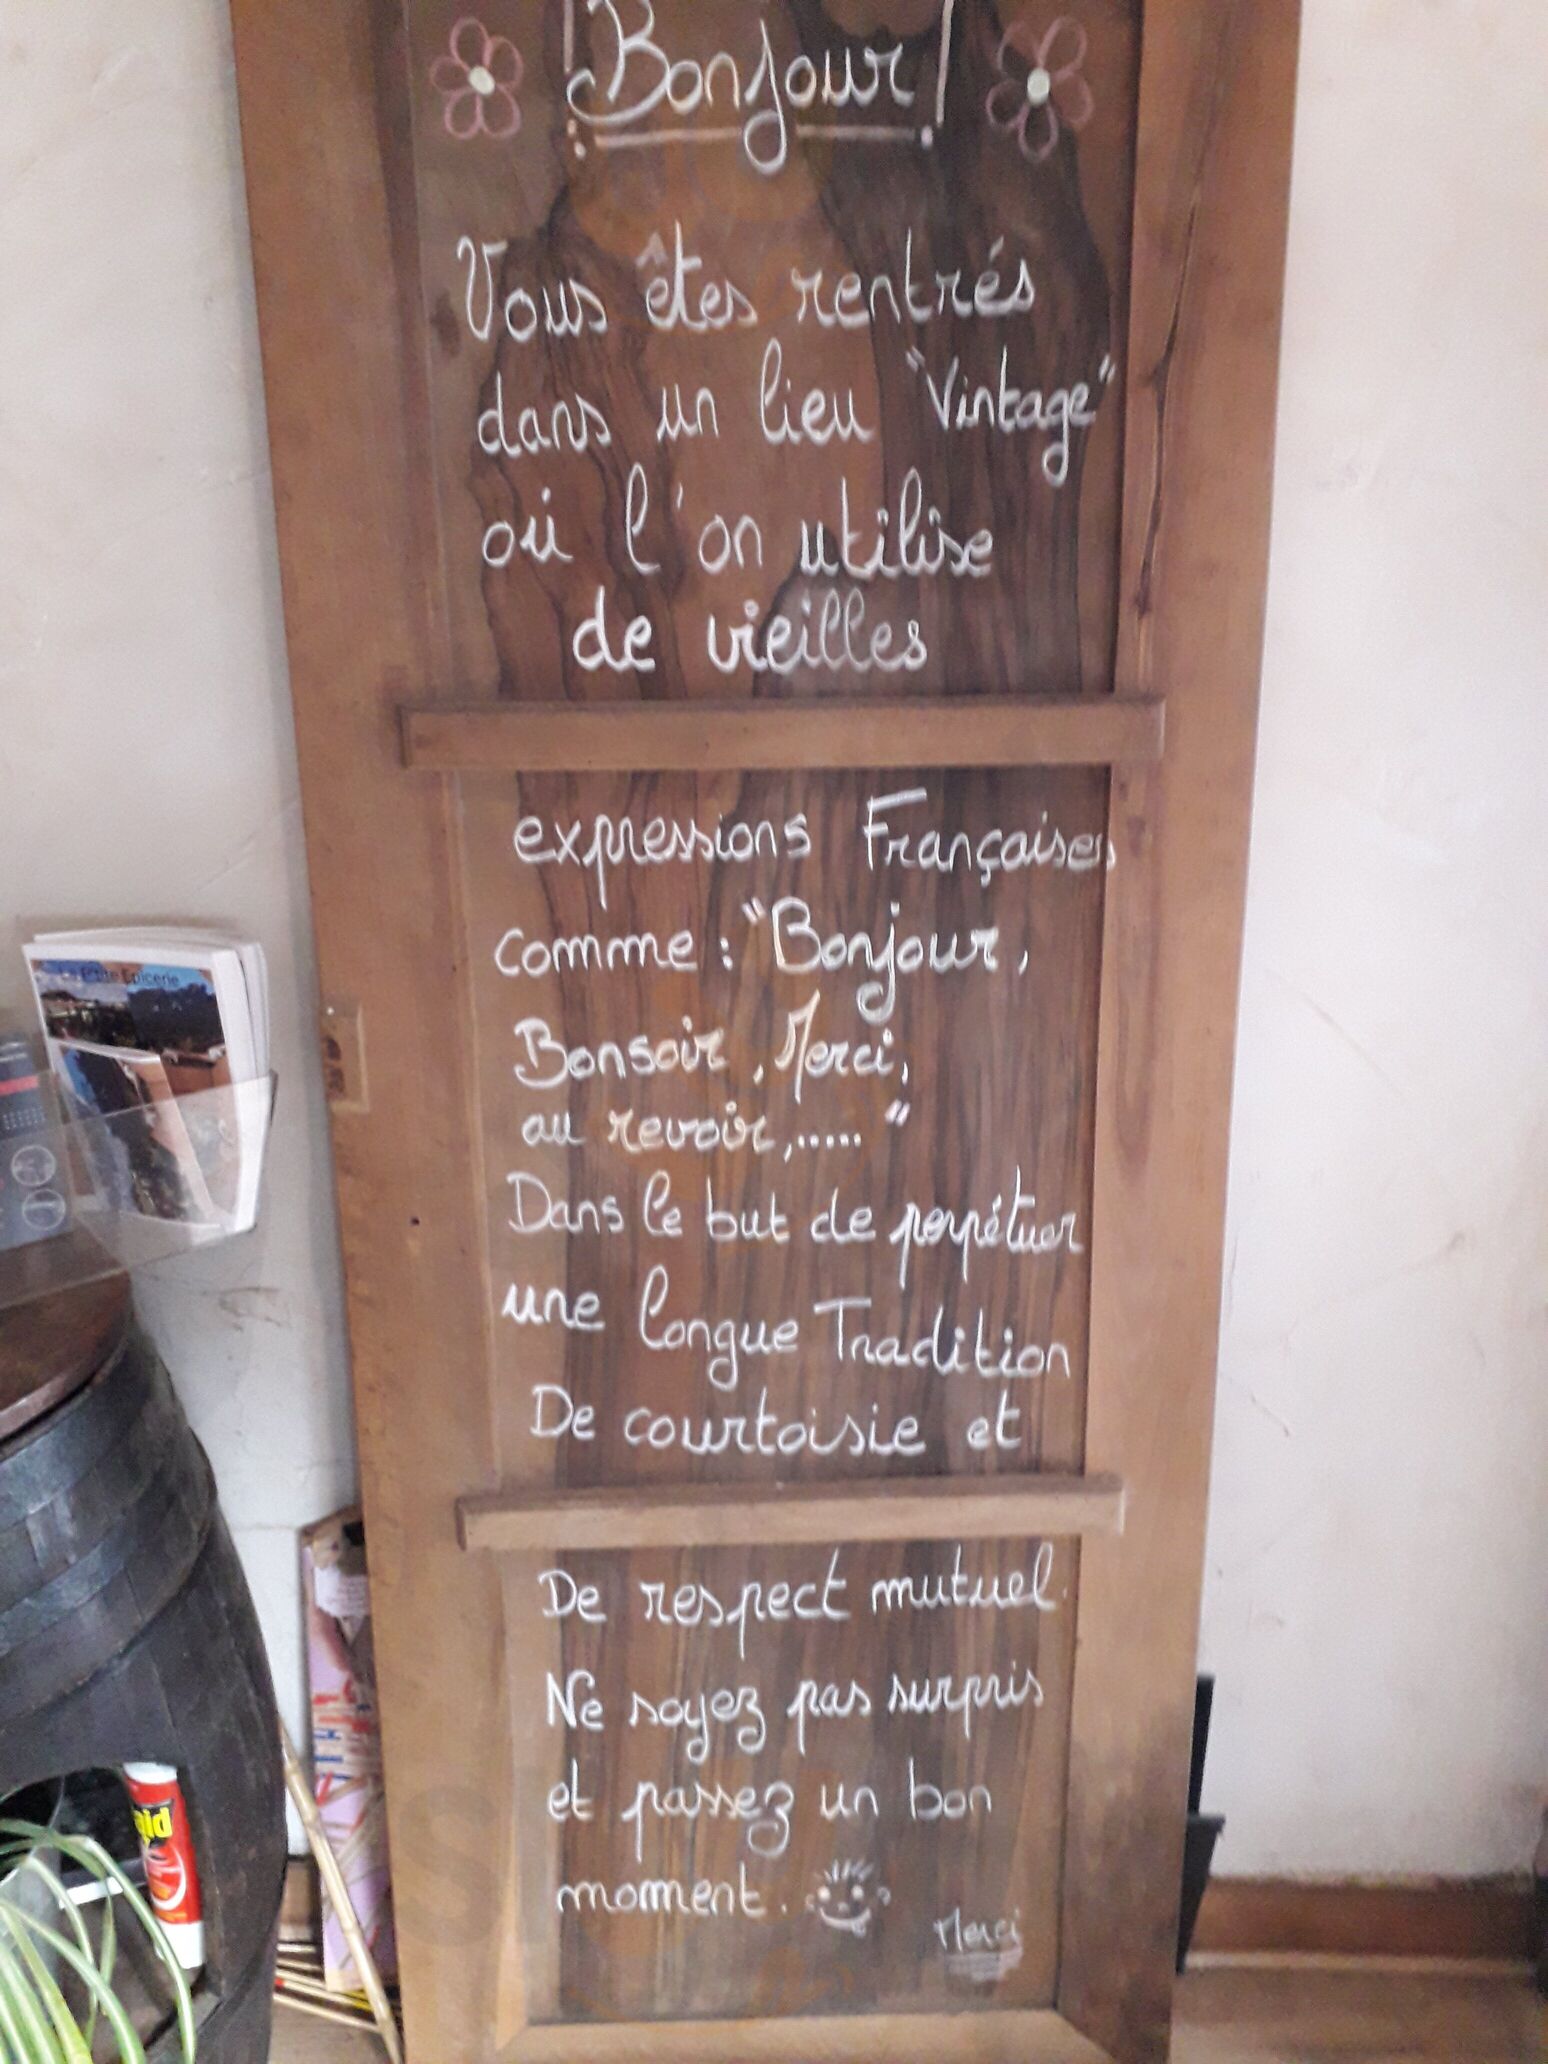 ! Bonjour !
Vous êtes rentrés
dans un lieu "Vintage"
où l'on utilise
de vieilles
expressions Françaises
comme : "Bonjour,
Bonsoir, Merci,
au revoir,..... "
Dans le but de perpétuer
une longue Tradition
De courtoisie et
De respect mutuel.
Ne soyez pas surpris
et passez un bon
moment.
Merci
La P'tite Epicerie